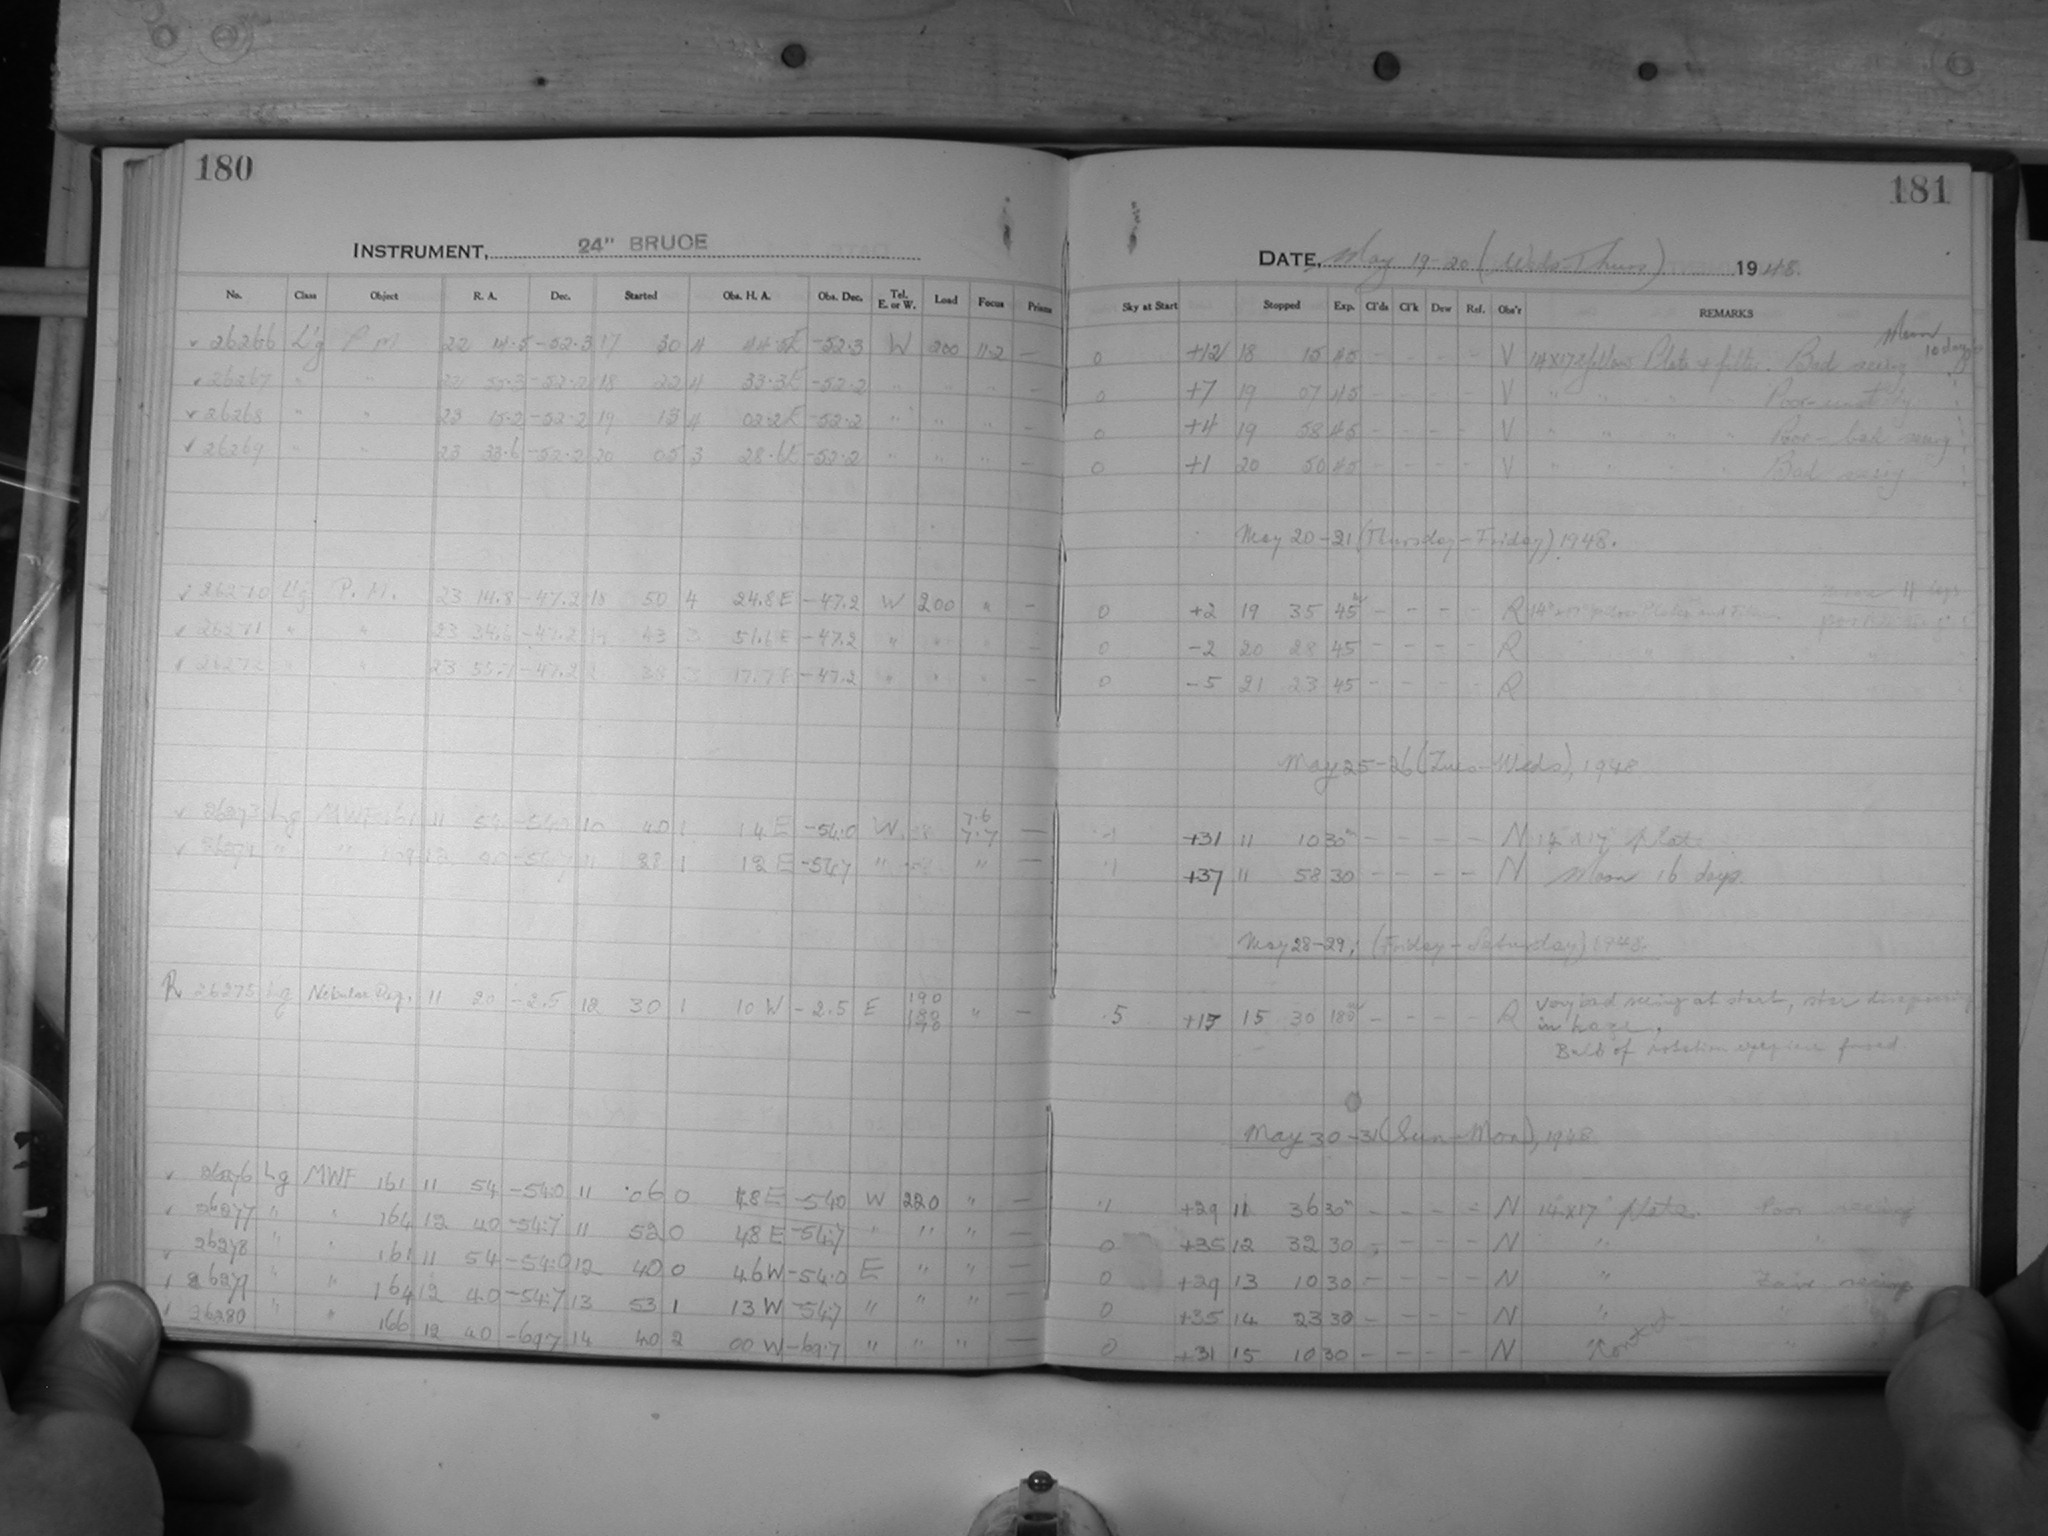 180
INSTRUMENT, 24" BRUCE
No. Class Object R. A. Dec. Started Obs. H. A. Obs. Dec. Tel. E. or W. Load Focus Prisms
26266 Lg P M 22 14.5 -52.3 17 30 4 44.5E -52.3 W 200 11.2 —
26267 " " 22 55.3 -52.2 18 22 4 33.3E -52.2 " " " —
26268 " " 23 15.2 -52.2 19 13 4 02.2E -52.2 " " " —
26269 " " 23 33.6 -52.2 20 05 3 28.6E -52.2 " " " —
26270 Lg P. M. 23 14.8 -47.2 18 50 4 24.8E -47.2 W 200 " —
26271 " " 23 34.6 -47.2 19 43 3 51.6E -47.2 " " " —
26272 " " 23 55.7 -47.2 38 3 17.7E -47.2 " " " —
26273 Lg MWF 161 11 54 -54.0 10 40 1 14E -54.0 W 7.6 7.7 —
26274 " " 12 40 -54.7 11 28 1 12E -54.7 " " —
R 26275 Lg Nebular Reg. 11 20 -2.5 12 30 1 10 W -2.5 E 190 180 170 " —
26276 Lg MWF 161 11 54 -54.0 11 06 0 48E -54.0 W 220 " —
26277 " " 164 12 40 -54.7 11 52 0 48E -54.7 " " " —
26278 " " 161 11 54 -54.0 12 40 0 46W -54.0 E " " —
26279 " " 164 12 40 -54.7 13 53 1 13W -54.7 " " " —
26280 " " 166 12 40 -69.7 14 40 2 00W -69.7 " " " —
181
DATE, May 19-20 (Weds-Thurs) 1948.
Sky at Start Stopped Exp. Cl'ds Cl'k Dew Ref. Obs'r REMARKS
Moon 10 days
0 +12 18 15 45 - - - - V 14x17 yellow Plate + filter. Bad seeing
0 +7 19 07 45 - - - - V " " " " Poor-unsteady
0 +4 19 58 45 - - - - V " " " " Poor-bad seeing
0 +1 20 50 45 - - - - V " " " " Bad seeing
May 20-21 (Thursday-Friday) 1948.
0 +2 19 35 45 - - - - R 14"x17" yellow Plates and Filter.
0 -2 20 28 45 - - - - R
0 -5 21 23 45 - - - - R
May 25-26 (Tues-Weds), 1948
+31 11 10 30m - - - - N 14"x17" plate
+37 11 58 30 - - - - N Moon 16 days.
May 28-29, (Friday-Saturday) 1948.
.5 +15 15 30 180 - - - - R Very bad seeing at start, star disappearing
in haze.
Bulb of rotation eyepiece fused.
May 30-31 (Sun-Mon), 1948
+29 11 36 30m - - - - N 14"x17" plate. Poor seeing
0 +35 12 32 30 - - - - N " "
0 +29 13 10 30 - - - - N " Fair seeing
0 +35 14 23 30 - - - - N " "
0 +31 15 10 30 - - - - N " "